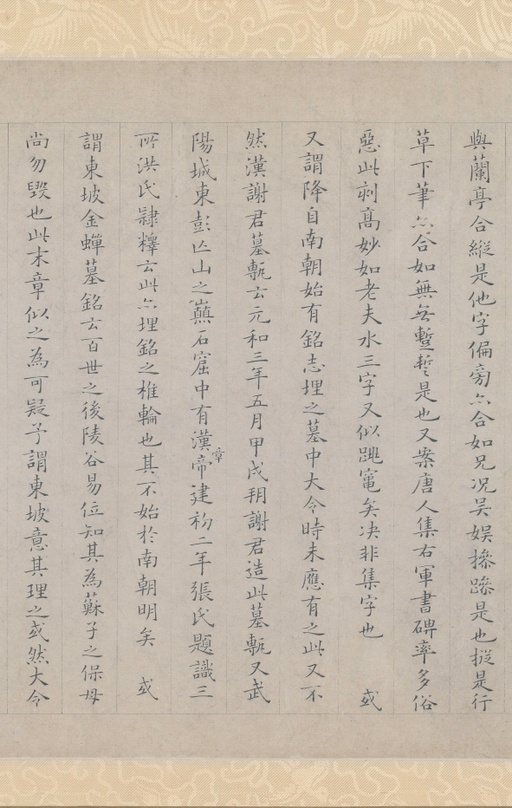 與蘭亭合縱是他字偏旁亦合如兄况吴娱摻蹤是也摐是行
草下筆亦合如無每蹔暫是也又案唐人集右軍書碑率多俗
惡此刻高妙如老夫水三字又似跳竃矣决非集字也　或
又謂降自南朝始有銘志埋之墓中大令時未應有之此又不
然漢謝君墓甎云元和三年五月甲戌朔謝君造此墓甎又武
陽城東彭亡山之巔石窟中有漢章帝建初二年張氏題識三
所洪氏隸釋云此亦埋銘之椎輪也其不始於南朝明矣　或
謂東坡金蟬墓銘云百世之後陵谷易位知其為蘇子之保母
尚勿毀也此末章似之為可疑予謂東坡意其理之或然大令